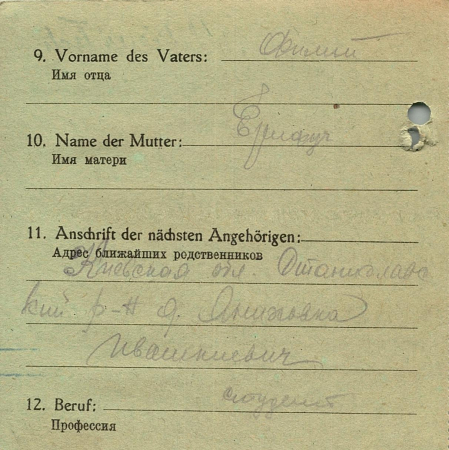 9. Vorname des Vaters: Филип
Имя отца
10. Name der Mutter:
Имя матери
11. Anschrift der nächsten Angehörigen:
Адрес ближайших родственников
Киевская обл.
кий р-н д.
12. Beruf: студент
Профессия